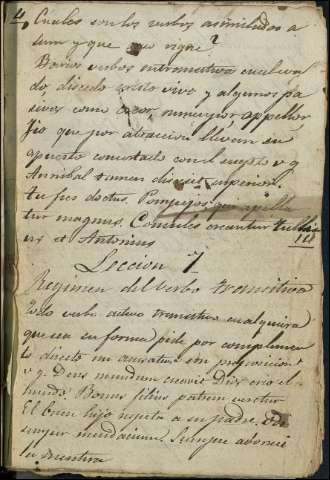 4
Cuales son los verbos asimilados a
sum y que rigen?
Barios verbos intransitivos
do, discedo vivo y algunos pa
sivos como creor, nuncupor, appellor,
fio que por atraccion llevan su
apuesto concertado con el sugeto v g
Annibal tamen discesit superior,
tu fies doctus. Pompeyos que apella
tur magnus. Consules creantur Tullius
et Antonius
Leccion 7
Regimen del verbo transitivo
Todo verbo activo transitivo cualquiera
que sea su forma pide por complemen
to directo un acusativo sin preposicion
v g. Deus mundum creavit Dios crio el
mundo. Bonus filius patrem veretur
El buen hijo respeta a su padre. Odi
semper mendacium. Siempre aborreci
la mentira